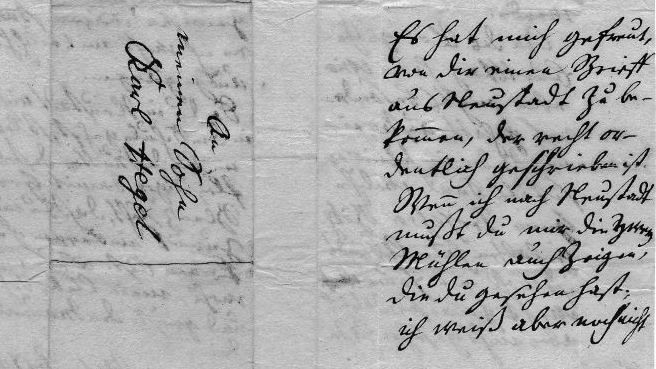 An
meinen Sohn
Karl Hegel
Es hat mich gefreut,
von dir einen Brieff
aus Neustadt zu be-
kommen, der recht or-
dentlich geschrieben ist.
Wen̄ ich nach Neustadt
mußt du mir die
Mühlen auch zeigen,
die du gesehen hast;
ich weiß aber noch nicht